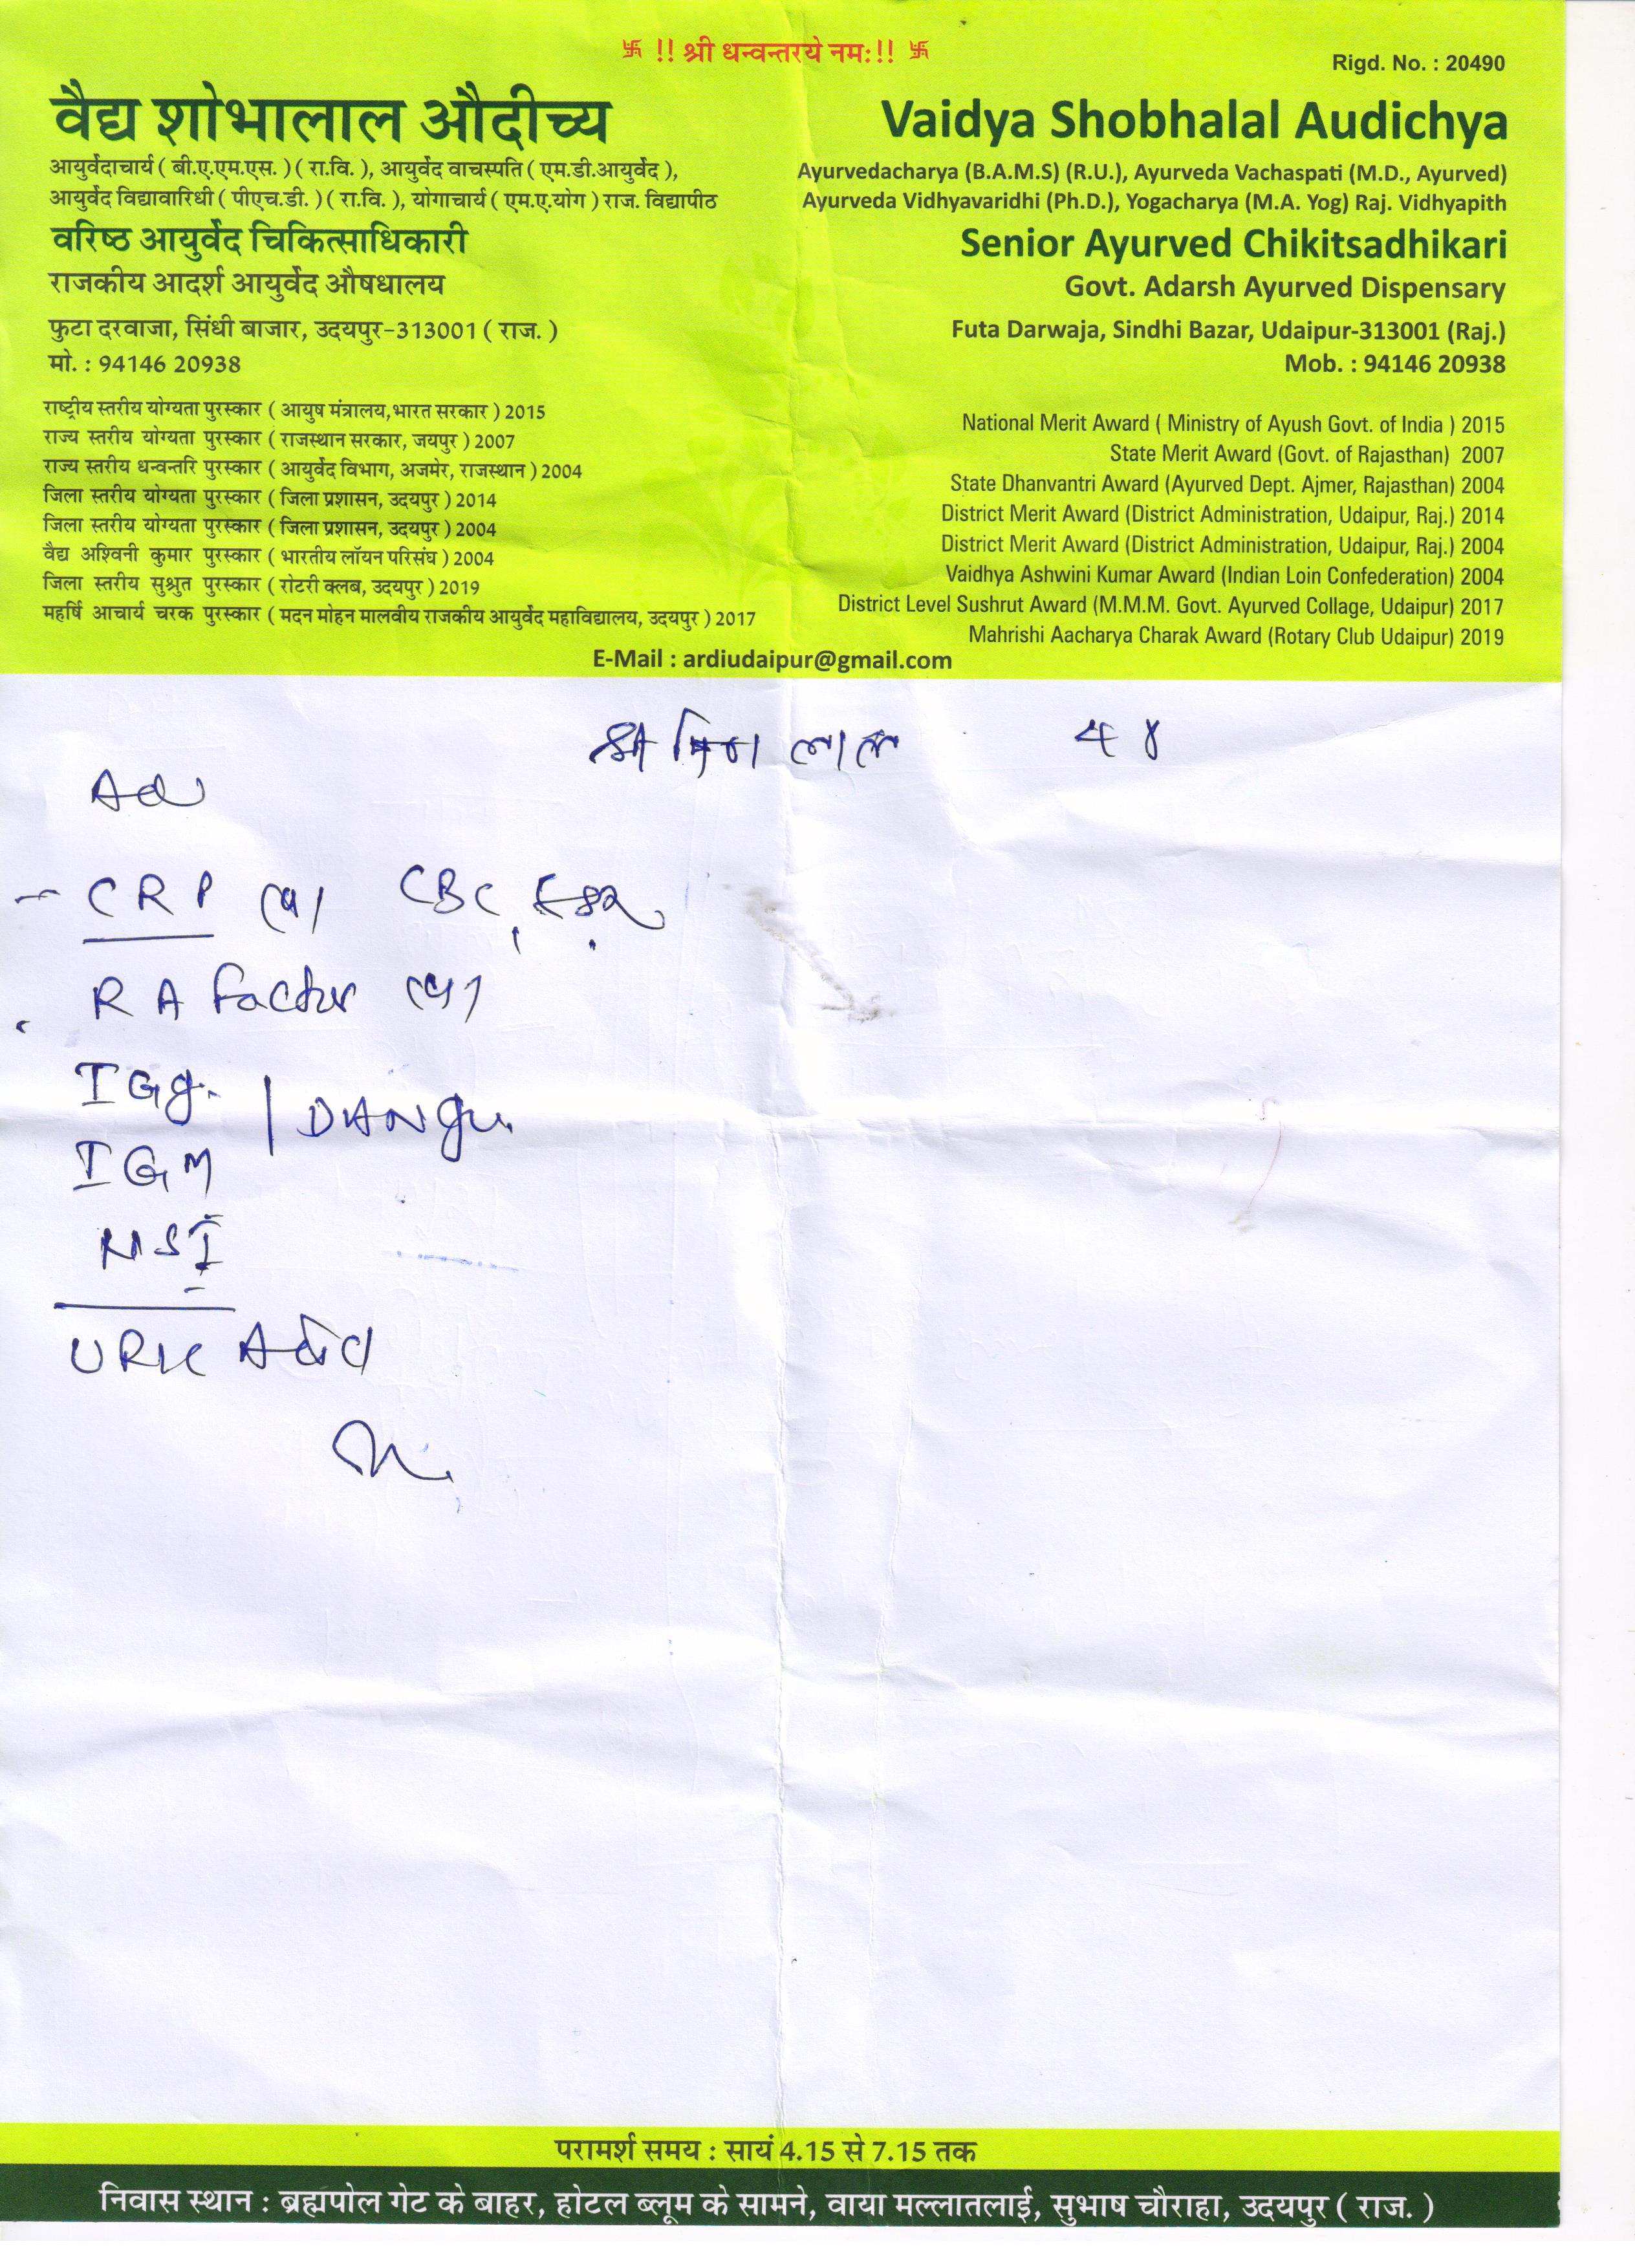 卐 !! श्री धन्वन्तरये नमः!! 卐
Rigd. No. : 20490
वैद्य शोभालाल औदीच्य
आयुर्वेदाचार्य ( बी.ए.एम.एस. ) ( रा.वि. ), आयुर्वेद वाचस्पति ( एम.डी.आयुर्वेद ),
आयुर्वेद विद्यावारिधी ( पीएच.डी. ) ( रा.वि. ), योगाचार्य ( एम.ए.योग ) राज. विद्यापीठ
वरिष्ठ आयुर्वेद चिकित्साधिकारी
राजकीय आदर्श आयुर्वेद औषधालय
फुटा दरवाजा, सिंधी बाजार, उदयपुर-313001 ( राज. )
मो. : 94146 20938
राष्ट्रीय स्तरीय योग्यता पुरस्कार ( आयुष मंत्रालय,भारत सरकार ) 2015
राज्य स्तरीय योग्यता पुरस्कार ( राजस्थान सरकार, जयपुर ) 2007
राज्य स्तरीय धन्वन्तरि पुरस्कार ( आयुर्वेद विभाग, अजमेर, राजस्थान ) 2004
जिला स्तरीय योग्यता पुरस्कार ( जिला प्रशासन, उदयपुर ) 2014
जिला स्तरीय योग्यता पुरस्कार ( जिला प्रशासन, उदयपुर ) 2004
वैद्य अश्विनी कुमार पुरस्कार ( भारतीय लॉयन परिसंघ ) 2004
जिला स्तरीय सुश्रुत पुरस्कार ( रोटरी क्लब, उदयपुर ) 2019
महर्षि आचार्य चरक पुरस्कार ( मदन मोहन मालवीय राजकीय आयुर्वेद महाविद्यालय, उदयपुर ) 2017
Vaidya Shobhalal Audichya
Ayurvedacharya (B.A.M.S) (R.U.), Ayurveda Vachaspati (M.D., Ayurved)
Ayurveda Vidhyavaridhi (Ph.D.), Yogacharya (M.A. Yog) Raj. Vidhyapith
Senior Ayurved Chikitsadhikari
Govt. Adarsh Ayurved Dispensary
Futa Darwaja, Sindhi Bazar, Udaipur-313001 (Raj.)
Mob. : 94146 20938
National Merit Award ( Ministry of Ayush Govt. of India ) 2015
State Merit Award (Govt. of Rajasthan) 2007
State Dhanvantri Award (Ayurved Dept. Ajmer, Rajasthan) 2004
District Merit Award (District Administration, Udaipur, Raj.) 2014
District Merit Award (District Administration, Udaipur, Raj.) 2004
Vaidhya Ashwini Kumar Award (Indian Loin Confederation) 2004
District Level Sushrut Award (M.M.M. Govt. Ayurved Collage, Udaipur) 2017
Mahrishi Aacharya Charak Award (Rotary Club Udaipur) 2019
E-Mail : ardiudaipur@gmail.com
लाल
Adv
- CRP CBC, ESR
RA factor
IGg.
IGM
NSI
URIC Acid
परामर्श समय : सायं 4.15 से 7.15 तक
निवास स्थान : ब्रह्मपोल गेट के बाहर, होटल ब्लूम के सामने, वाया मल्लातलाई, सुभाष चौराहा, उदयपुर ( राज. )